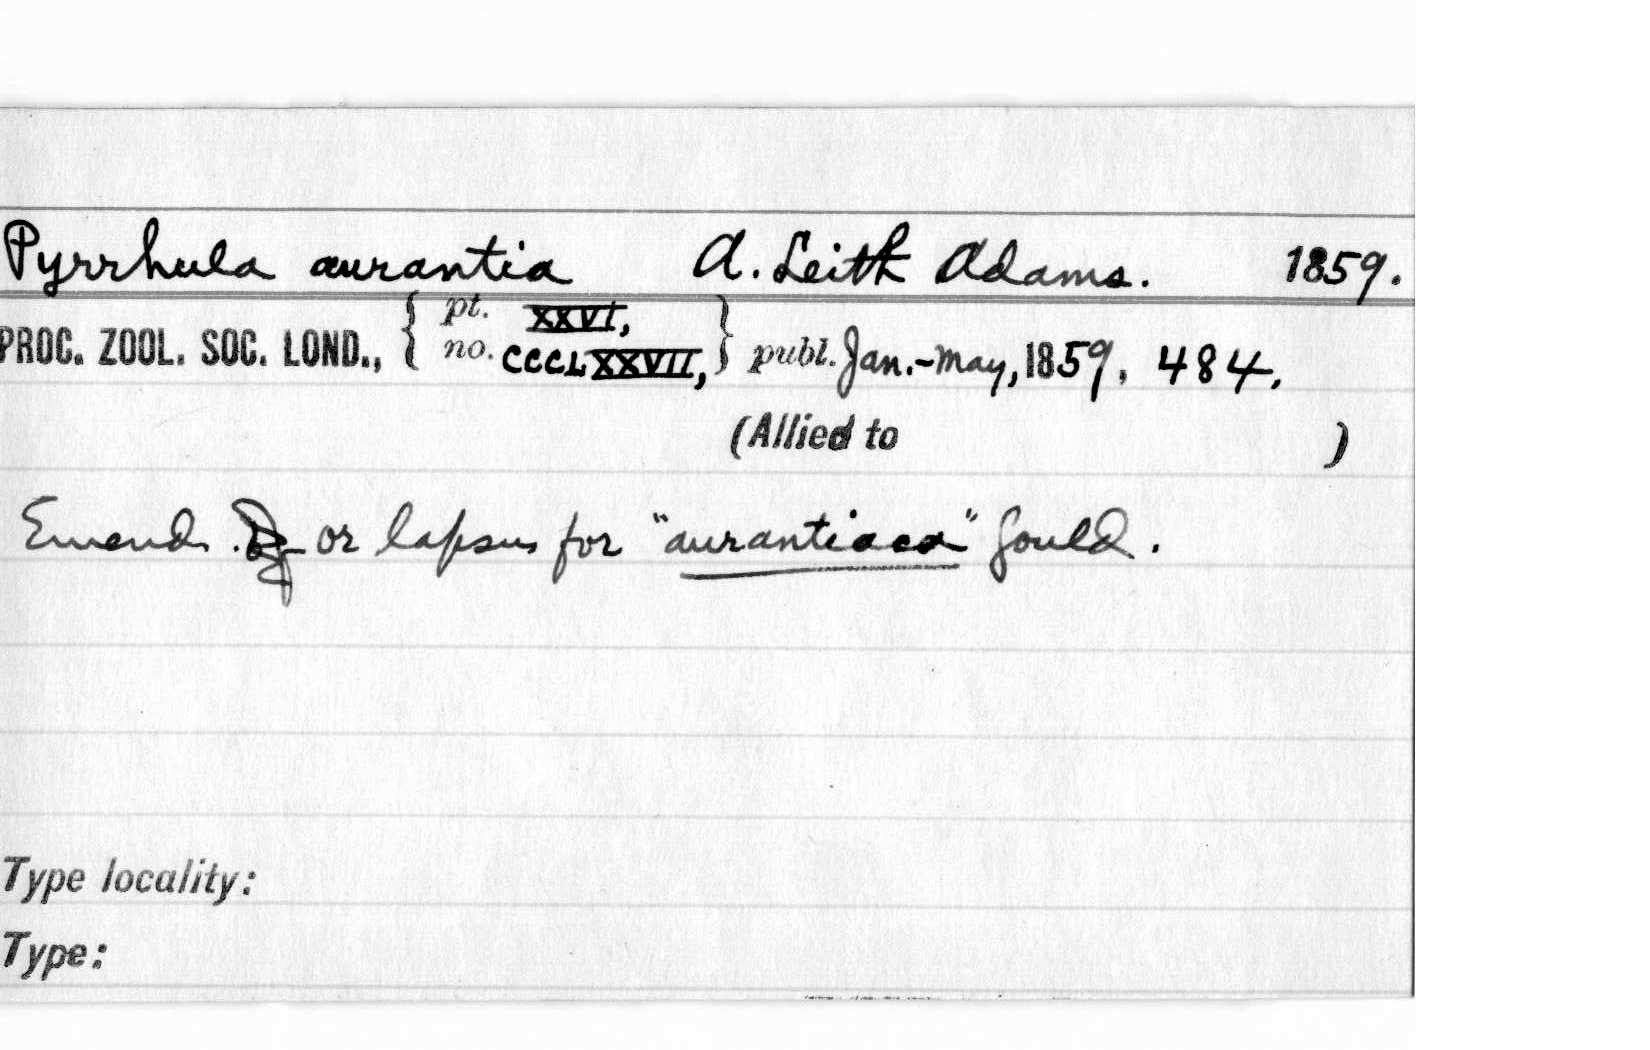 Pyrrhula aurantia A. Leith Adams. 1859.
PROC. ZOOL. SOC. LOND., { pt. XXVI, no. CCCLXXVII, } publ. Jan.-May, 1859, 484,
(Allied to )
Emend. or lapsus for "aurantiaca" Gould.
Type locality:
Type: